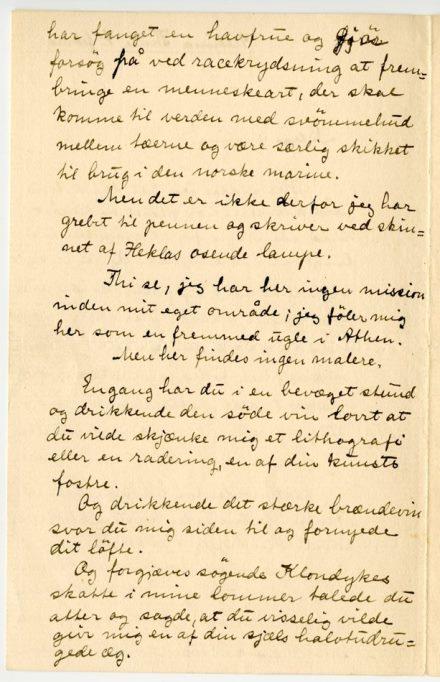 har fanget en havfrue og gjör
forsög på ved racekrydsning at frem=
bringe en menneskeart, der skal
komme til verden med svömmehud
mellem tæerne og være særlig skikket
til brug i den norske marine.
Men det er ikke derfor jeg har
grebet til pennen og skriver ved skin=
net af Heklas osende lampe.
Thi se, jeg har her ingen mission
inden mit eget område; jeg föler mig
her som en fremmed ugle i Athen.
Men her findes ingen malere.
Engang har du i en bevæget stund
og drikkende den söde vin lovet at
du vilde skjænke mig et lithografi
eller en radering, en af din kunsts
fostre.
Og drikkende det stærke brændevin
svor du mig siden til og fornyede
dit löfte.
Og forgjæves sögende Klondykes
skatte i mine lommer talede du
atter og sagde, at du visselig vilde
give mig en af din sjæls halvtudru=
gede æg.